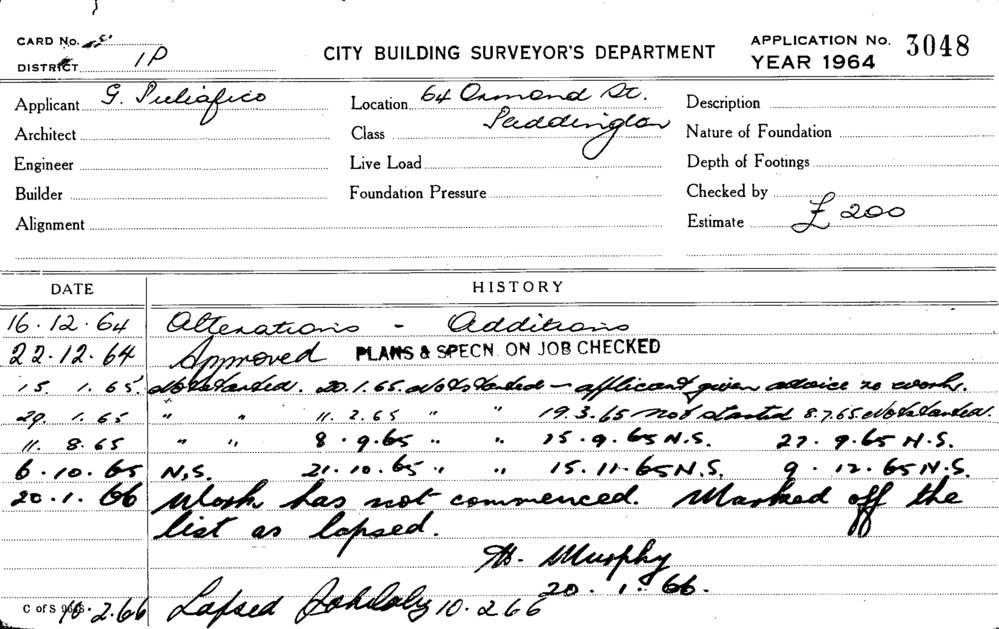 CARD No.
DISTRICT 1P
CITY BUILDING SURVEYOR'S DEPARTMENT
APPLICATION No. 3048
YEAR 1964
Applicant G. Puliafico
Location 64 Ormond St.
Paddington
Description
Architect
Class
Nature of Foundation
Engineer
Live Load
Depth of Footings
Builder
Foundation Pressure
Checked by
Alignment
Estimate £200
DATE HISTORY
16.12.64 Alterations - Additions
22.12.64 Approved PLANS & SPECN. ON JOB CHECKED
15. 1. 65. Not started. 20.1.65. Not started - applicant given advice re work.
29. 1. 65 " " 11. 2. 65 " " 19.3.65 not started 8.7.65 Not started.
11. 8. 65 " " 8. 9. 65 " " 15. 9. 65 N.S. 27. 9. 65 N.S.
6. 10. 65 N.S. 21. 10. 65 " " 15. 11. 65 N.S. 9. 12. 65 N.S.
20. 1. 66 Work has not commenced. Marked off the
list as lapsed.
Murphy
20. 1. 66.
C of S 10. 2. 66 Lapsed 10. 2 66